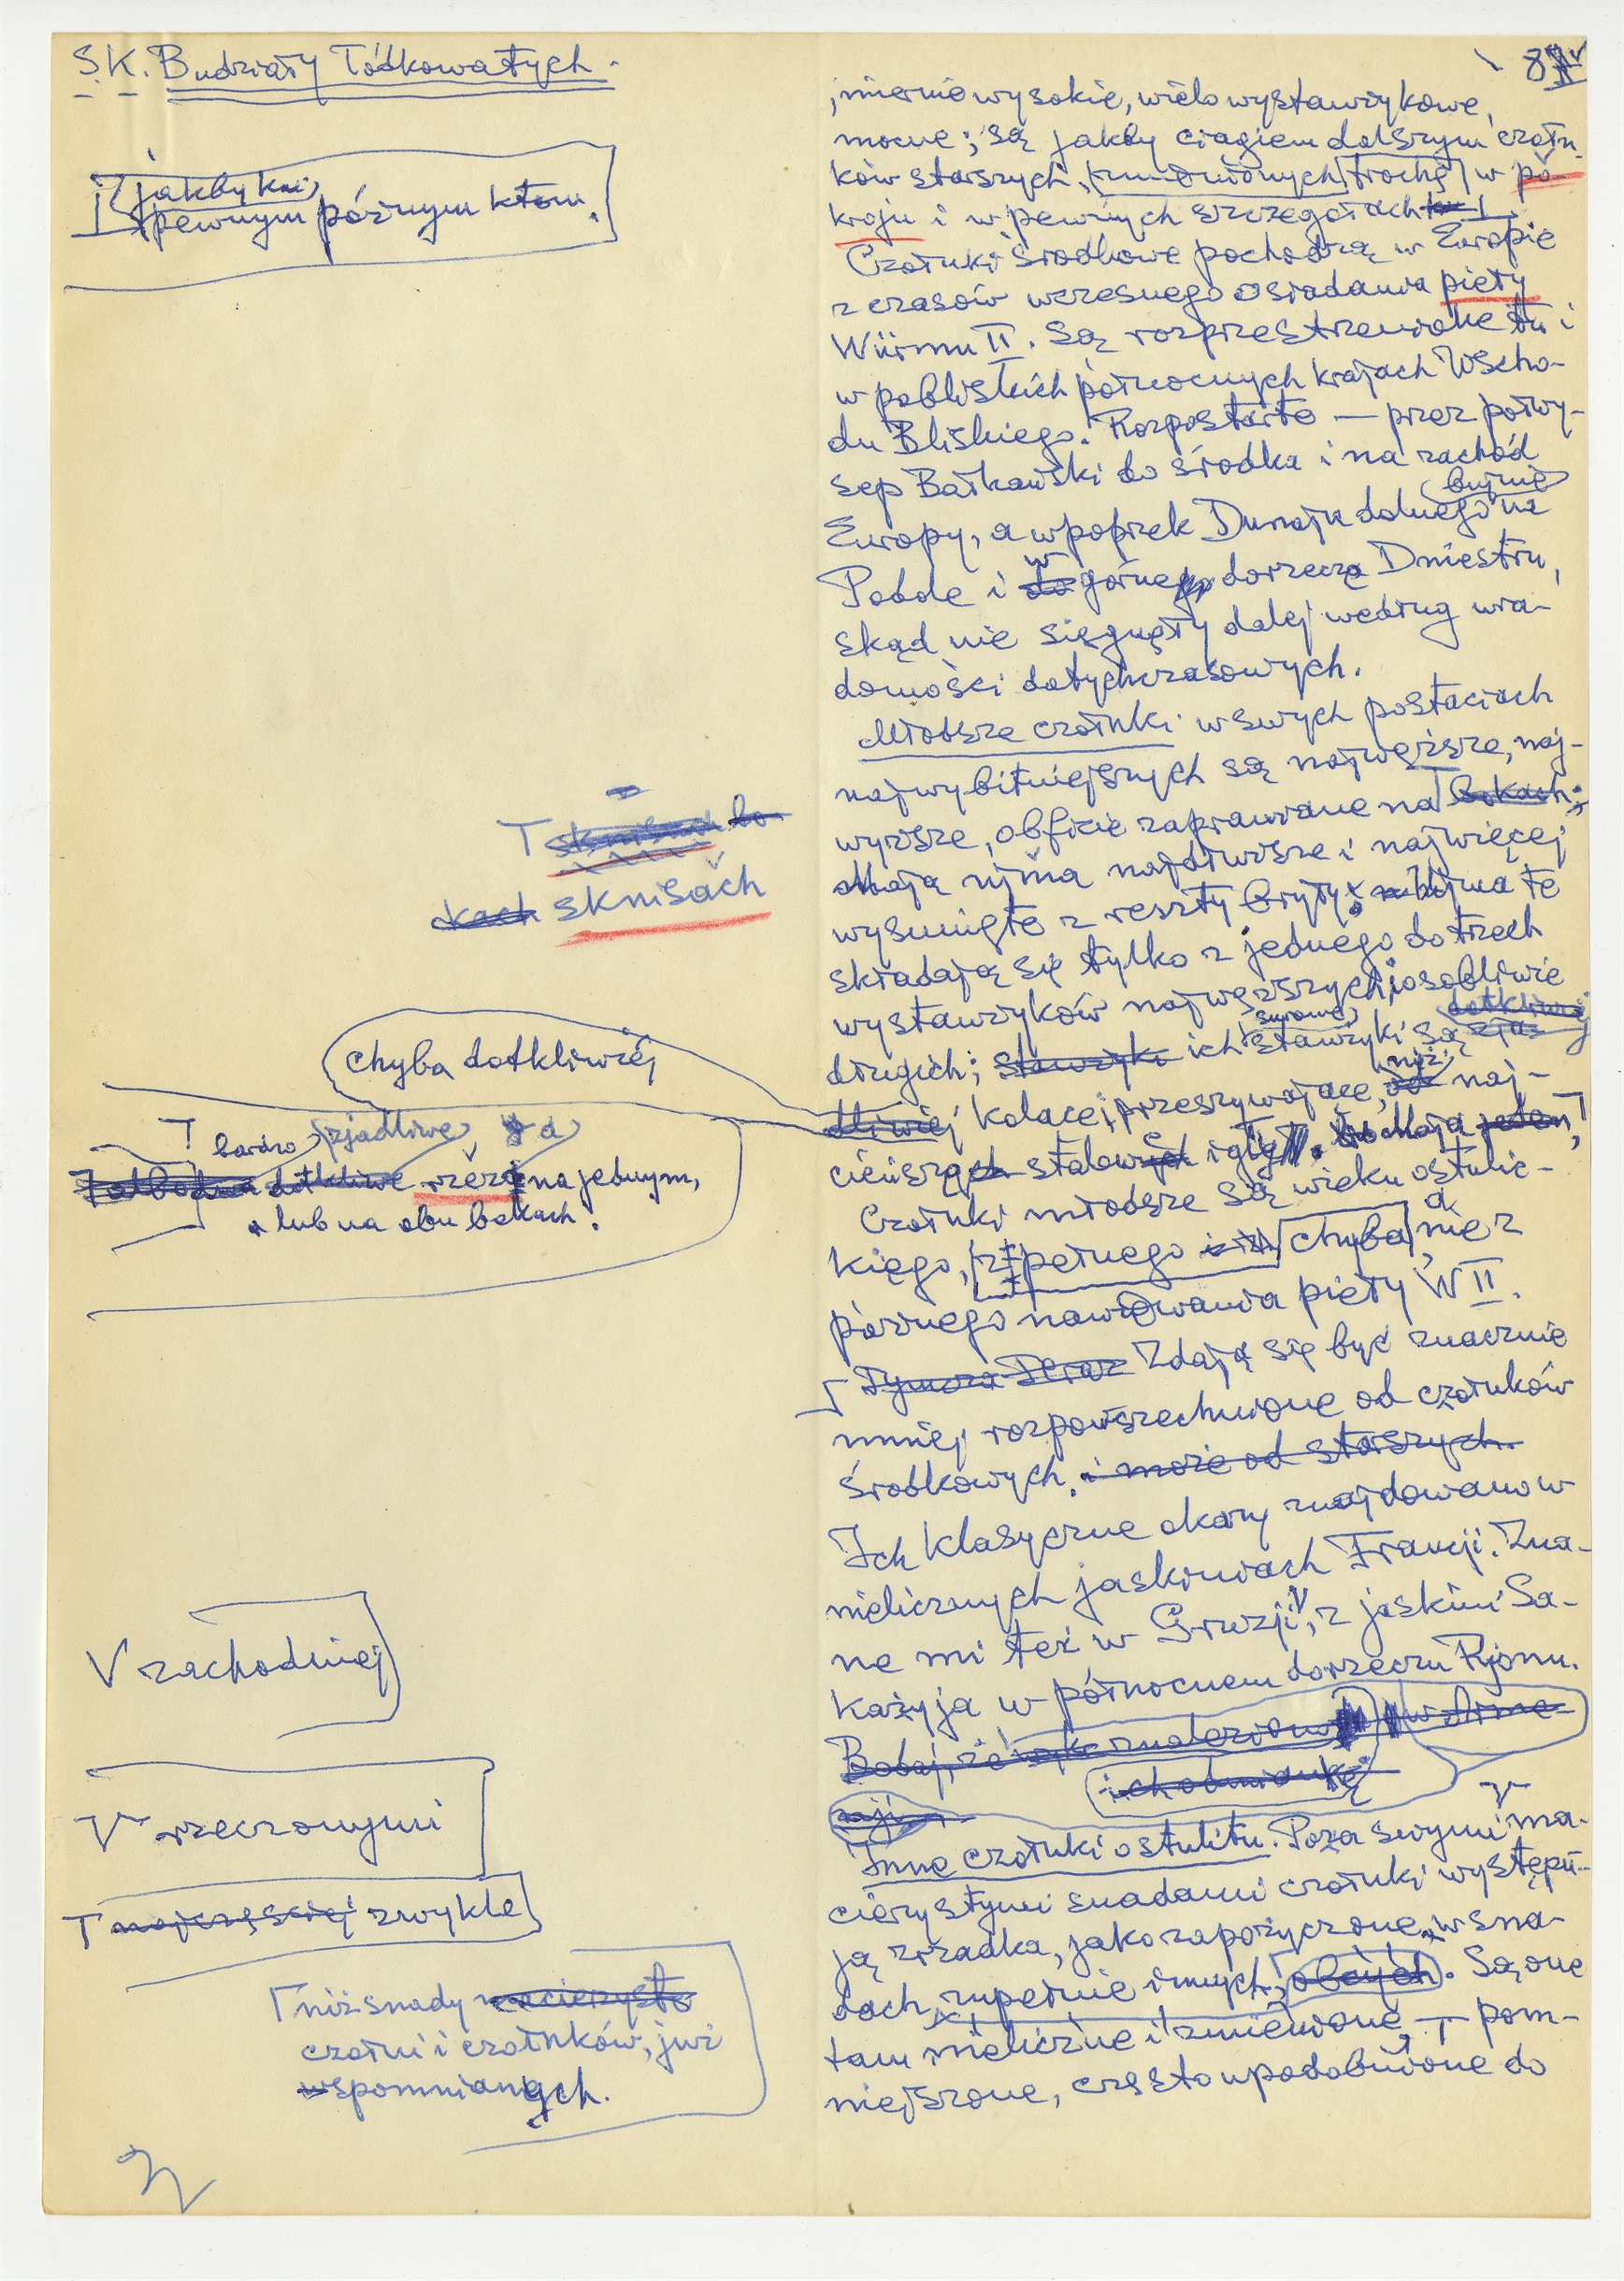 S.K. Budziały Tódkowatych.
jakby ku
pewnym późnym kłom.
T
sknisach
chyba dotkliwiéj
T bardzo zjadliwe, a
rzèzą na jednym,
lub na obu bokach.
V zachodniej
V rzeczonymi
T najczęściej zwykle
T niż snady macierzyste
czółni i czółnków, już
wspomnianych.
87
, miernie wysokie, wielowystawzykowe,
mocne; są jakby ciągiem dalszym czółn-
ków starszych, zmienionych trochę w po-
kroju i w pewnych szczegółach
Czółnki środkowe pochodzą w Europie
z czasów wczesnego osiadania pięty
Würmu II. Są rozprzestrzenione tu i
w pobliskich północnych krajach Wscho-
du Bliskiego. Rozpostarte — przez półwy-
sep Bałkański do środka i na zachód
bujnie
Europy, a w poprzek Dunaju dolnego na
w
Podole i do górnego dorzecza Dniestru,
skąd nie sięgnęły dalej według wia-
domości dotychczasowych.
Młodsze czółnki w swych postaciach
najwybitniejszych są najwęższe, naj-
wyższe, obficie zaprawiane na bokach;
Mają ujma najdłuższe i najwięcej
wysunięte z reszty bryły; ujma te
składają się tylko z jednego do trzech
wystawzyków najwęższych, osobliwie
długich; stawzyki ich stawzyki są
dotkliwiej
kolące, przeszywające, niż naj-
cieńsze stalowe igły. Mają jeden
Czółnki młodsze są wieku ostulic-
kiego, z pełnego chyba, a nie z
późnego nawiewania pięty W II.
Zdają się być znacznie
mniej rozpowszechnione od czółnków
środkowych, i może od starszych.
Ich klasyczne okazy znajdowano w
nielicznych jaskiniach Francji. Zna-
ne mi też w Gruzji V, z jaskini Sa-
każyja w północnem dorzeczu Rjonu.
Bodaj, że
ich odmiankę
Inne czółnki ostulitu. Poza swymi V ma-
cierzystymi snadami czółnki występu-
ją zrzadka, jako zapożyczone, w sna-
dach zupełnie innych, obcych. Są one
tam nieliczne i zmienione, T pom-
niejszone, często upodobnione do